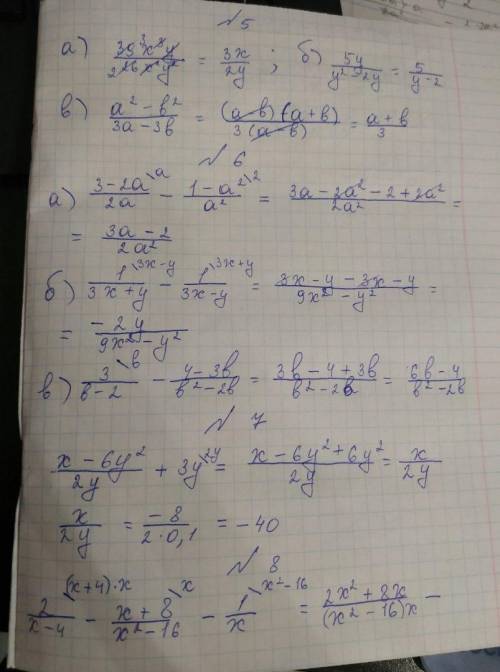 №5
а) 39x³y / 26x²y² = 3x / 2y ; б) 5y / y² - 2y = 5 / y - 2
в) a² - b² / 3a - 3b = (a - b)(a + b) / 3(a - b) = a + b / 3
№6
а) 3 - 2a \a / 2a - 1 - a² \2 / a² = 3a - 2a² - 2 + 2a² / 2a² =
= 3a - 2 / 2a²
б) 1 \3x-y / 3x + y - 1 \3x+y / 3x - y = 3x - y - 3x - y / 9x² - y² =
= - 2y / 9x² - y²
в) 3 \b / b - 2 - 4 - 3b / b² - 2b = 3b - 4 + 3b / b² - 2b = 6b - 4 / b² - 2b
№7
x - 6y² / 2y + 3y \2y = x - 6y² + 6y² / 2y = x / 2y
x / 2y = - 8 / 2 · 0,1 = - 40
№8
2 \(x+4)·x / x - 4 - x + 8 \x / x² - 16 - 1 \x²-16 / x = 2x² + 8x / (x² - 16)x -